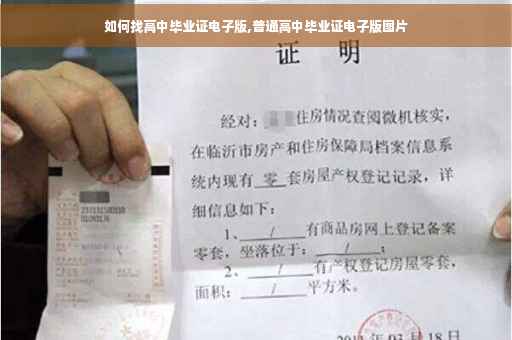 如何找高中毕业证电子版,普通高中毕业证电子版图片
证 明
经对: 住房情况查阅微机核实,
在临沂市房产和住房保障局档案信息系
统内现有 零 套房屋产权登记记录,详
细信息如下:
1、 / 有商品房网上登记备案
零套,坐落位于: / ;
2、 / 有产权登记房屋零套,
面积: / 平方米。